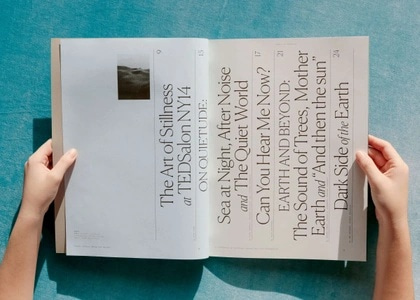 9
The Art of Stillness
at TEDSalon NY14
15
ON QUIETUDE:
Sea at Night, After Noise
and The Quiet World
17
Can You Hear Me Now?
21
EARTH AND BEYOND:
The Sound of Trees, Mother
Earth and "And then the sun"
24
Dark Side of the Earth